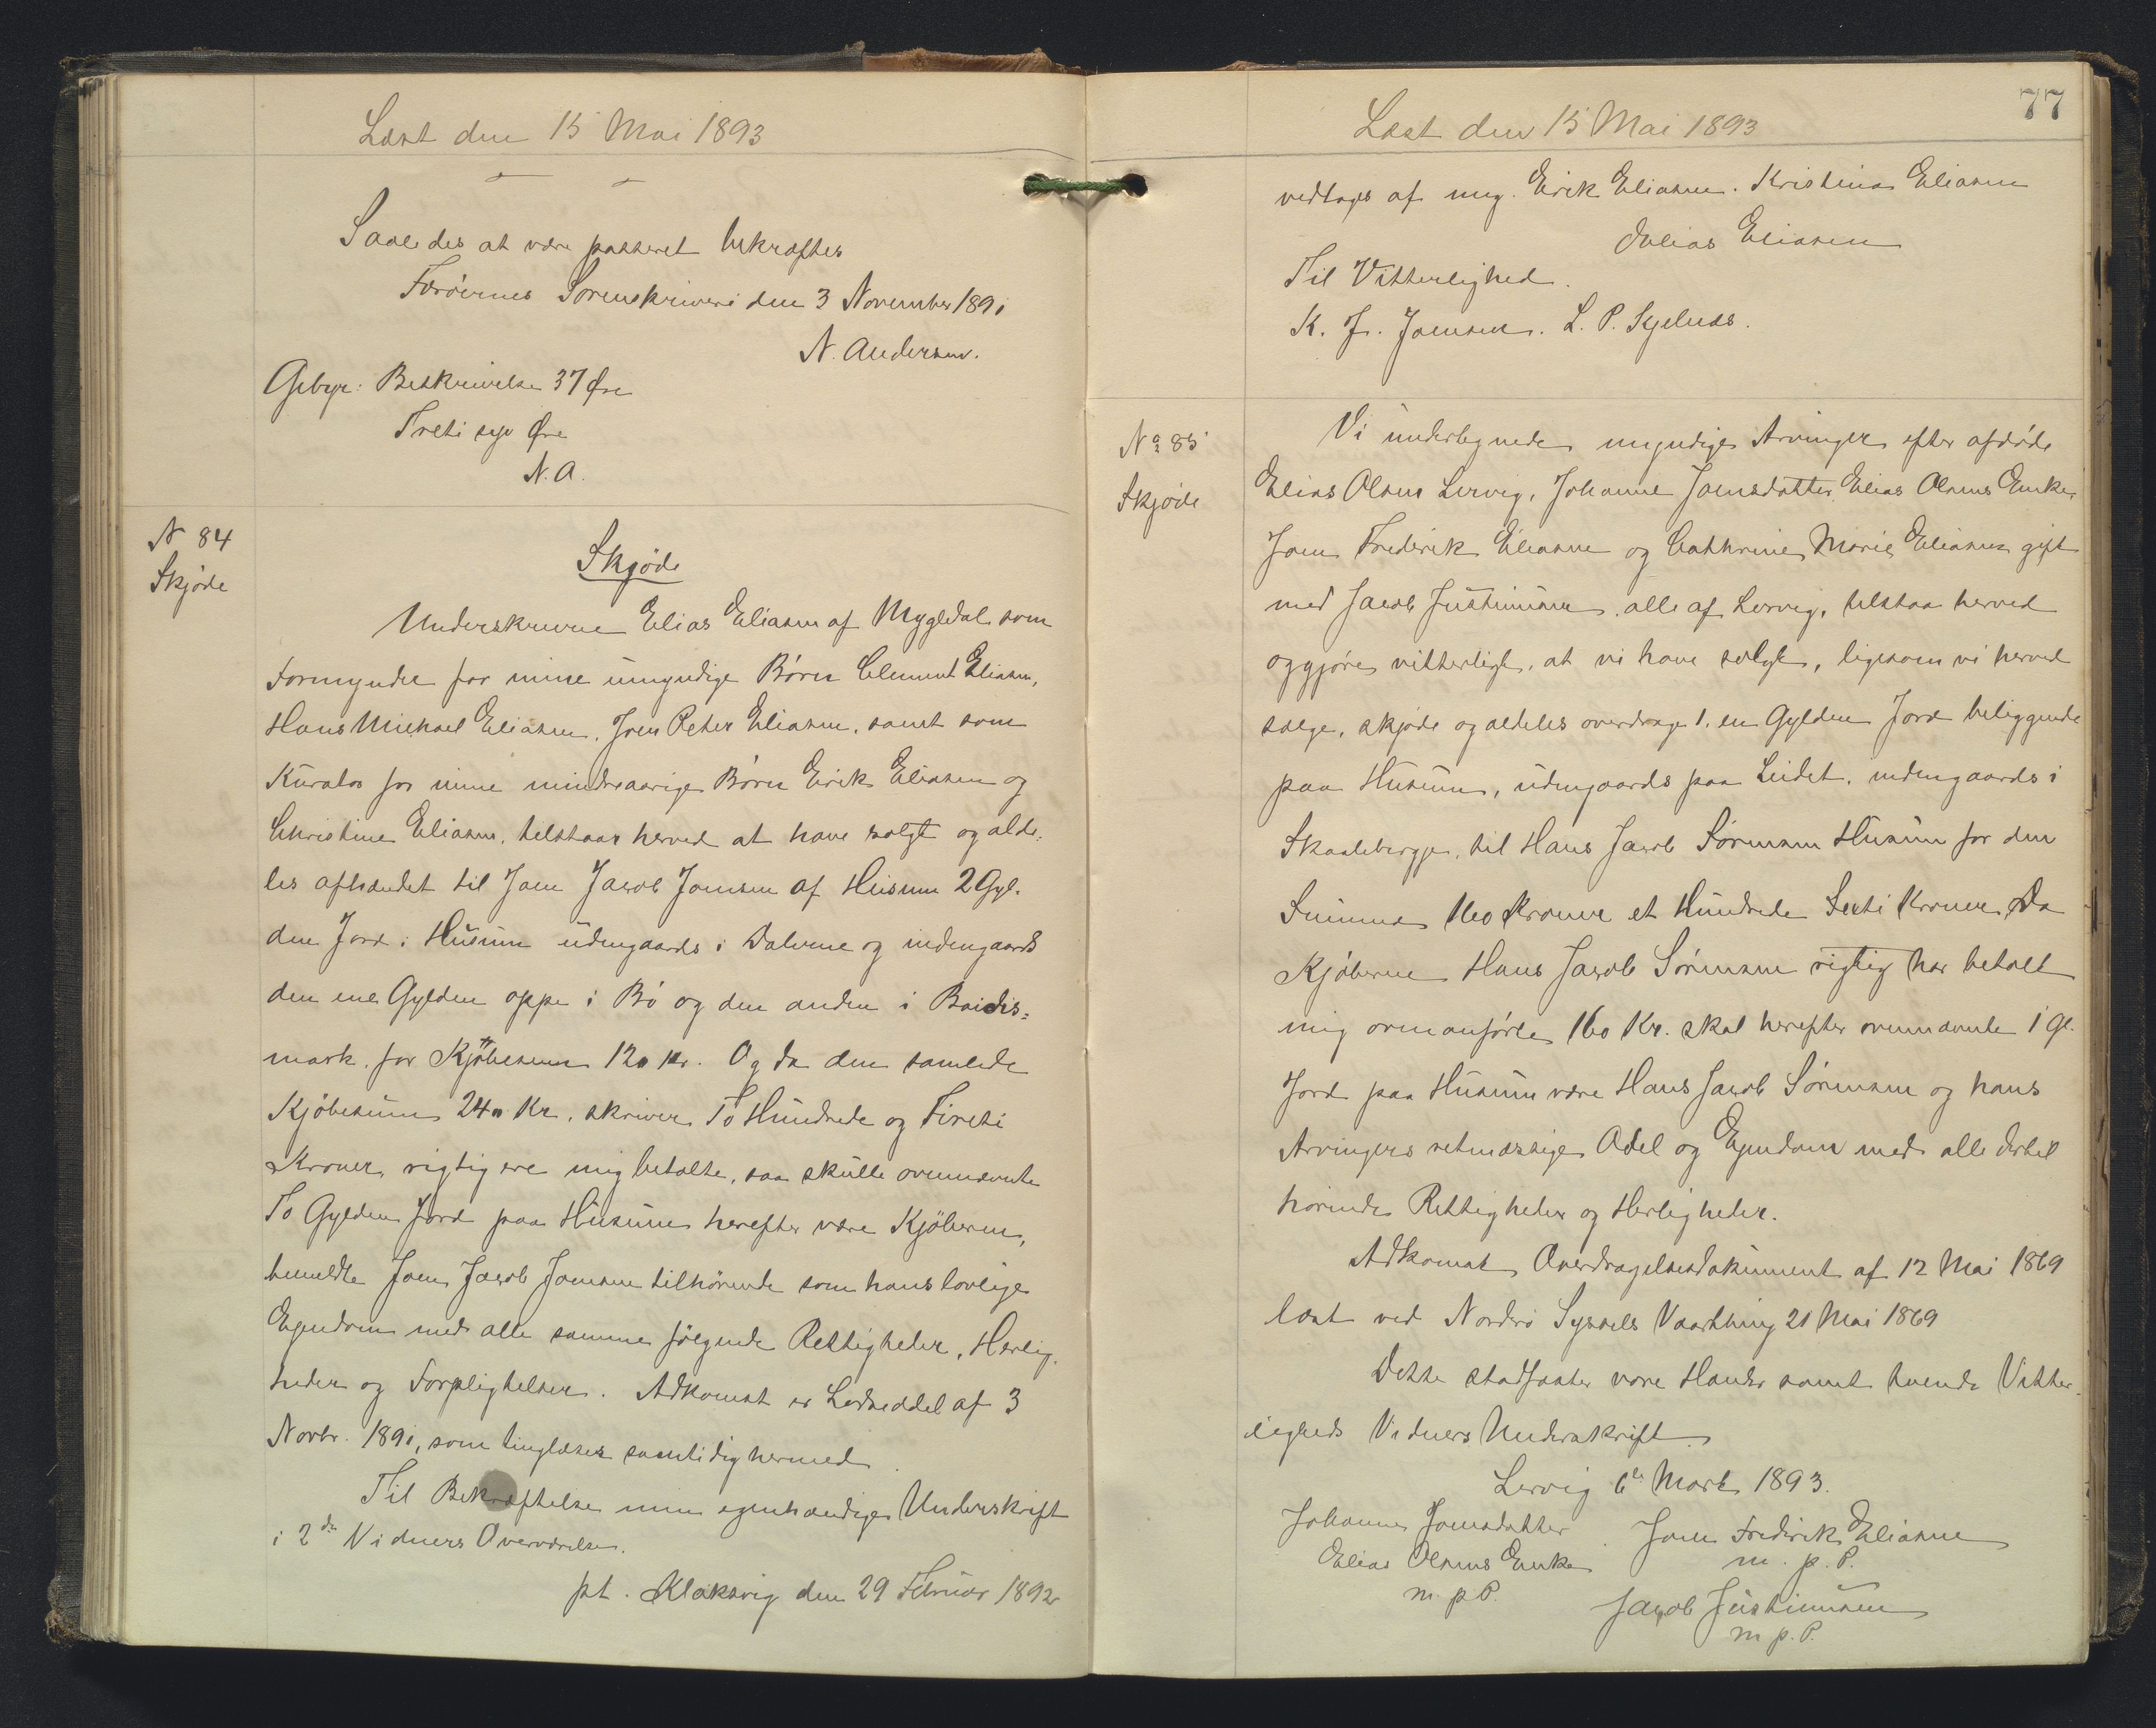 Læst den 15 Mai 1893
Saaledes at være passeret bekræftes
Færøernes Sorenskriveri den 3 November 1891
N. Andersen.
Gebyr: Beskrivelse 37 Øre
Treti syv Øre
N. A.
N 84
Skjøde
Skjøde
Underskrevne Elias Eliasen af Mygledal som
Formynder for mine umyndige Børn Clement Eliasen,
Hans Michael Eliasen, Joen Peter Eliasen, samt som
Kurator for mine mindreaarige Børn Eirik Eliasen og
Christine Eliasen, tilstaar herved at have solgt og alde-
les afhændet til Joen Jacob Joensen af Husum 2 Gyl-
den Jord i Husum udengaards i Dalerne og indengaards
den ene Gylden oppe i Bø og den anden i Baidis=
mark, for Kjøbesum 120 Kr. Og da den samlede
Kjøbesum 240 Kr. skriver To Hundrede og Fireti
Kroner rigtig ere mig betalte, saa skulle ovennævnte
To Gylden Jord paa Husum herefter være Kjøberen,
bemeldte Joen Jacob Joensen tilhørende som hans lovlige
Ejendom med alle samme følgende Rettigheder, Herlig-
heder og Forpligtelser. Adkomst er Lodseddel af 3
Novbr. 1891, som tinglæses samtidig hermed.
Til Bekræftelse min egenhændige Underskrift
i 2de Vidners Overværelse.
pt. Klaksvig den 29 Februar 1892
77
Læst den 15 Mai 1893
vedtages af mig. Eirik Eliasen. Kristina Eliasen
Elias Eliasen
Til Vitterlighed.
K. J. Joensen. L. P.
No 85
Skjøde
Vi undertegnede myndige Arvinger efter afdøde
Elias Olsen Lervig, Johanne Joensdatter, Elias Olsens Enke,
Joen Frederik Eliasen og Cathrine Marie Eliasen gift
med Jacob Justinussen, alle af Lervig, tilstaa herved
og gjøre vitterligt, at vi have solgt, ligesom vi herved
sælge, skjøde og aldeles overdrage 1, en Gylden Jord beliggende
paa Husum, udengaards paa Leidet, indengaards i
Skaalebergge, til Hans Jacob Sørensen Husum for den
Summa 160 Kroner et Hundrede Sexti Kroner, Da
Kjøberen Hans Jacob Sørensen rigtig har betalt
mig ovenanførte 160 Kr. skal herefter ovennævnte 1 Gl.
Jord paa Husum være Hans Jacob Sørensen og hans
Arvingers retmæssige Odel og Ejendom med alle dertil
hørende Rettigheder og Herligheder.
Adkomst Overdragelsesdokument af 12 Mai 1869
læst ved Norderø Syssels Vaarthing 21 Mai 1869
Dette stadfæster vore Hænder samt tvende Vitter-
ligheds Vidners Underskrift.
Lervig 6te Marts 1893.
Johanne Joensdatter
Elias Olsens Enke
m. p. P.
Joen Frederik Eliasen
m. p. P.
Jacob Justinussen
m. p. P.